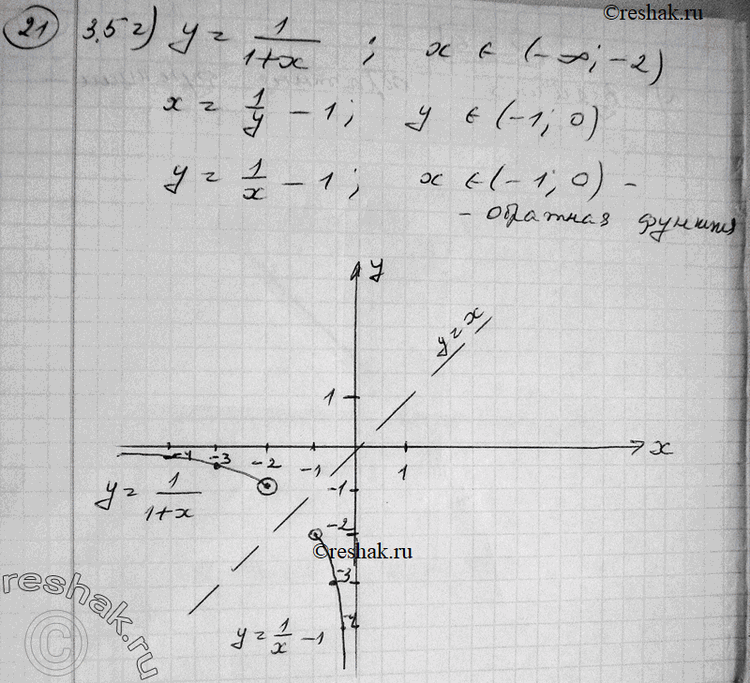 ©reshak.ru
21 3.5 г) y = 1/(1+x) ; x ∈ (-∞; -2)
x = 1/y - 1; y ∈ (-1; 0)
y = 1/x - 1; x ∈ (-1; 0) -
- обратная функция
y
y = x
1
-4 -3 -2 -1 1 x
y = 1/(1+x)
-1
-2
©reshak.ru
-3
-4
y = 1/x - 1
reshak.ru
©
©reshak.ru